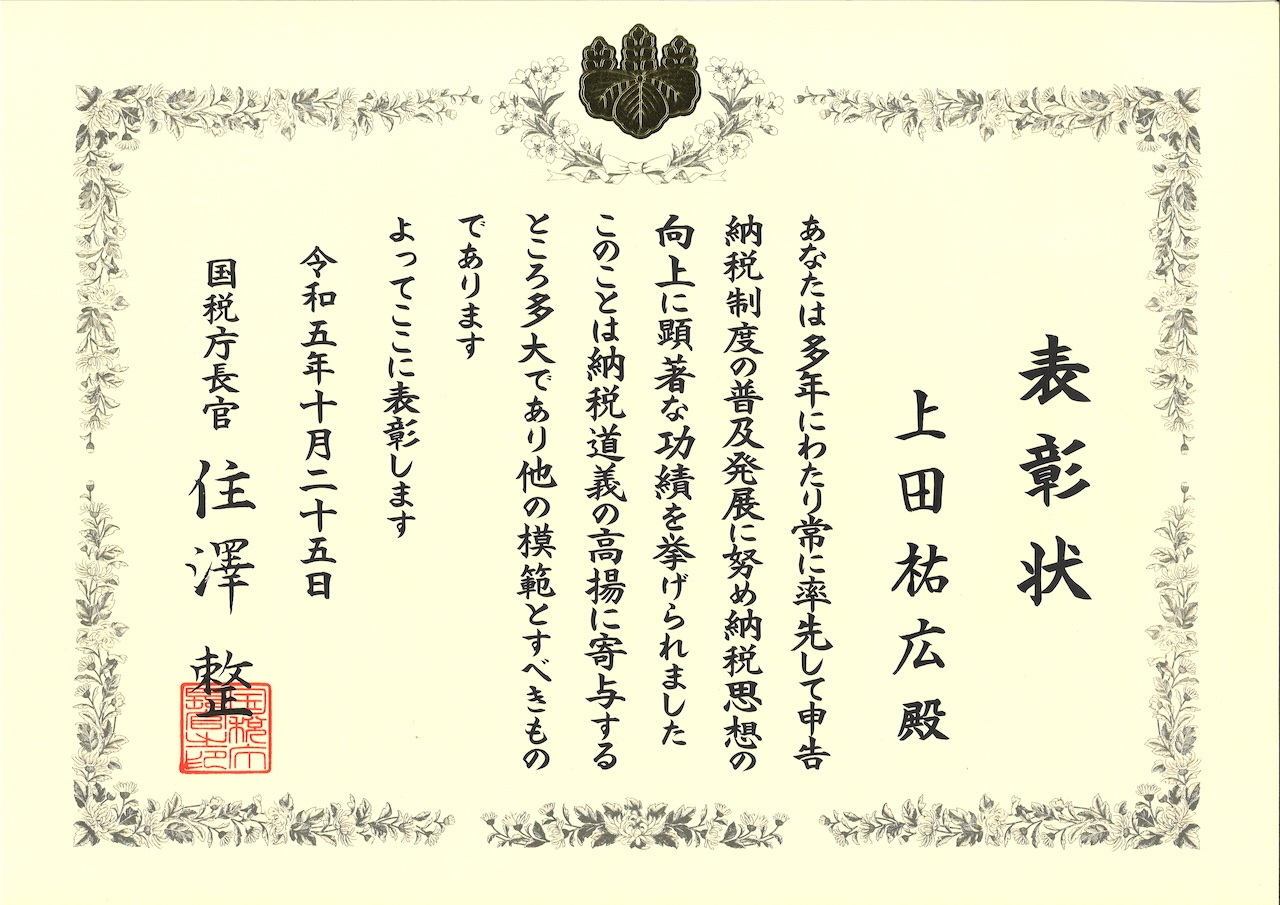 表彰状
上田祐広殿
あなたは多年にわたり常に率先して申告
納税制度の普及発展に努め納税思想の
向上に顕著な功績を挙げられました
このことは納税道義の高揚に寄与する
ところ多大であり他の模範とすべきもの
であります
よってここに表彰します
令和五年十月二十五日
国税庁長官 住澤整
国税庁長官之印